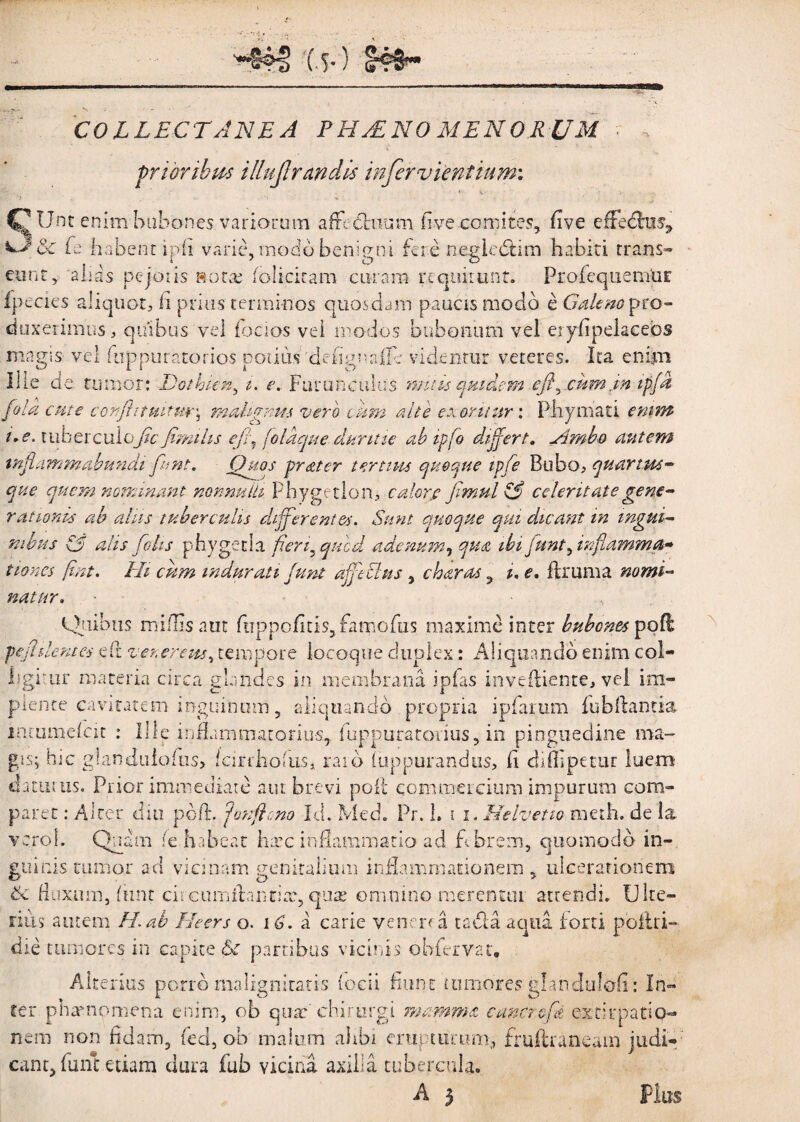 (5.)
COLLECTANEA PHÆNOMENORUM
prioribus illuſtrandis inſervientium:
SUnt enim bubones variorum affectuum ſive comites, ſive effectus,
& ſe habent ipſi varie, modò benigni ferè neglectim habiti trans-
eunt, aliàs pejoris notæ ſolicitam curam requirunt. Proſequemur
ſpecies aliquot, ſi prius terminos quosdam paucis modò è Galeno pro-
duxerimus, quibus vel ſocios vel modos bubonum vel eryſipelaceos
magis vel ſuppuratorios potiùs deſignaſſe videntur veteres. Ita enim
Ille de tumor: Dothien, i. e. Furunculus mitis quidem eſt, cum in ipſâ
ſolâ cute conſtituitur; malignus verò cùm altè exoritur: Phymati enim
i. e. tuberculo ſic ſimilis eſt, ſolâque duritie ab ipſo differt. Ambo autem
inflammabundi ſunt. Quos præter tertius quoque ipſe Bubo, quartus-
que quem nominant nonnulli Phygetlon, calore ſimul & celeritate gene-
rationis ab aliis tuberculis differentes. Sunt quoque qui dicant in ingui-
nibus & alis ſolis phygetla fieri, quòd adenum, quæ ibi ſunt, inflamma-
tiones ſint. Hi cùm indurati ſunt affectus, chœras, i. e. ſtruma nomi-
natur.
Quibus miſſis aut ſuppoſitis, famoſus maximè inter bubones poſt
peſtilentes eſt venereus, tempore locoque duplex: Aliquandò enim col-
ligitur materia circa glandes in membranâ ipſas inveſtiente, vel im-
plente cavitatem inguinum, aliquandò propria ipſarum ſubſtantia
intumeſcit: Ille inflammatorius, ſuppuratorius, in pinguedine ma-
gis; hic glanduloſus, ſcirrhoſus, rarò ſuppurandus, ſi diſſipetur luem
daturus. Prior immediatè aut brevi poſt commercium impurum com-
paret: Alter diu pòſt. Jonſtono Id. Med. Pr. l. 11. Helvetio meth. de la
verol. Quàm ſe habeat hæc inflammatio ad febrem, quomodò in-
guinis tumor ad vicinam genitalium inflammationem, ulcerationem
& fluxum, ſunt circumſtantiæ, quæ omnino merentur attendi. Ulte-
riùs autem H. ab Heers o. 16. à carie venereâ tactâ aquâ forti poſtri-
diè tumores in capite & partibus vicinis obſervat.
Alterius porrò malignitatis ſocii fiunt tumores glanduloſi: In-
ter phænomena enim, ob quæ chirurgi mammæ cancroſæ extirpatio-
nem non fidam, ſed, ob malum alibi erupturum, fruſtraneam judi-
cant, ſunt etiam dura ſub vicinâ axillâ tubercula.
A 3 Plus